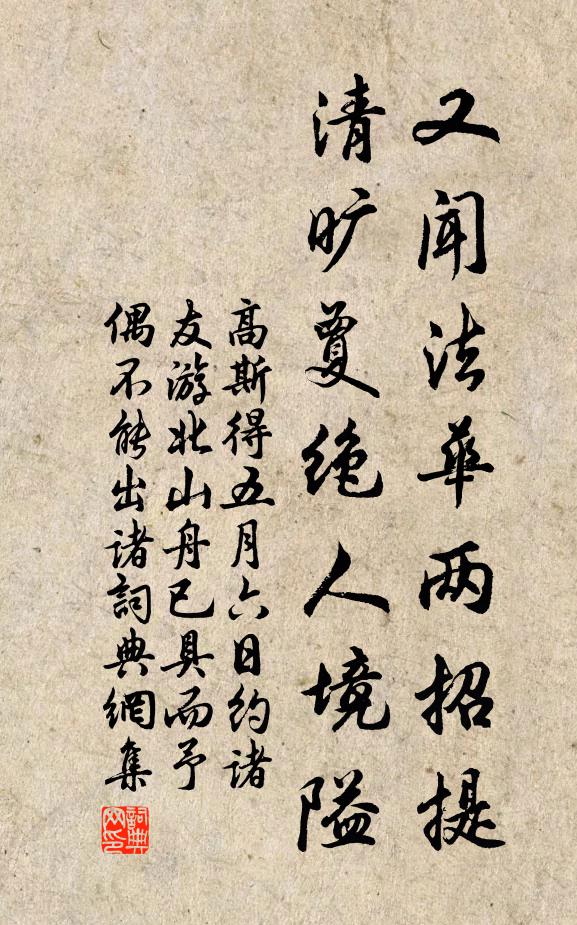 又闻法華两招提
清旷夐绝人境隘
高斯得五月六日约诸
友游北山舟已具而予
偶不能出诸詞典網集
詞典
网印